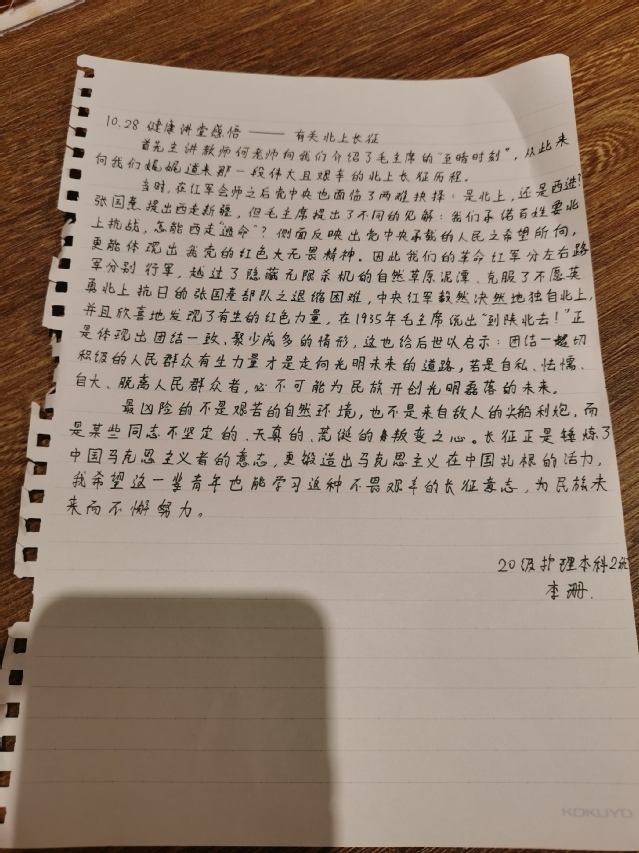 10.28 健康讲堂感悟 —— 有关北上长征
首先主讲教师何老师向我们介绍了毛主席的“至暗时刻”，从此来
向我们娓娓道来那一段伟大且艰辛的北上长征历程。
当时，在红军会师之后党中央也面临了两难抉择：是北上，还是西进？
张国焘提出西走新疆，但毛主席提出了不同的见解：我们承诺百姓要北
上抗战，怎能西走“逃命”？侧面反映出党中央承载的人民之希望所向，
更能体现出我党的红色大无畏精神。因此我们的革命红军分左右路
军分别行军，越过了隐藏无限杀机的自然草原泥潭、克服了不愿英
勇北上抗日的张国焘部队之退缩困难，中央红军毅然决然地独自北上，
并且欣喜地发现了有生的红色力量，在1935年毛主席说出“到陕北去！”正
是体现出团结一致、聚少成多的情形，这也给后世以启示：团结一切
积极的人民群众有生力量才是走向光明未来的道路，若是自私、怯懦、
自大、脱离人民群众者，必不可能为民族开创光明磊落的未来。
最凶险的不是艰苦的自然环境，也不是来自敌人的尖船利炮，而
是某些同志不坚定的、天真的、荒诞的叛变之心。长征正是锤炼了
中国马克思主义者的意志，更锻造出马克思主义在中国扎根的活力，
我希望这一辈青年也能学习这种不畏艰辛的长征意志，为民族未
来而不懈努力。
20级护理本科2班
李珊.
KOKUYO